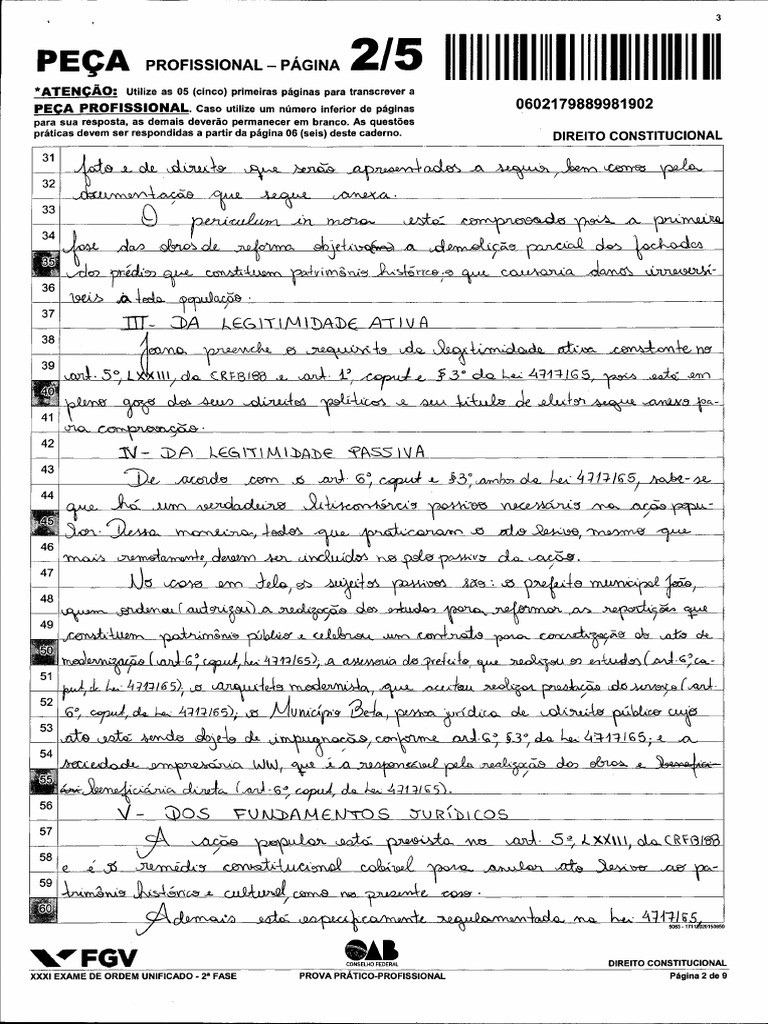 3
PEÇA PROFISSIONAL – PÁGINA 2/5
*ATENÇÃO: Utilize as 05 (cinco) primeiras páginas para transcrever a
PEÇA PROFISSIONAL. Caso utilize um número inferior de páginas
para sua resposta, as demais deverão permanecer em branco. As questões
práticas devem ser respondidas a partir da página 06 (seis) deste caderno.
0602179889981902
DIREITO CONSTITUCIONAL
31 fato e de direito que serão apresentados a seguir, bem como pela
32 documentação que segue anexa.
33 O periculum in mora está comprovado pois a primeira
34 fase das obras de reforma objetivam a demolição parcial das fachadas
35 dos prédios que constituem patrimônio histórico, o que causaria danos irreversí-
36 veis à toda população.
37 III- DA LEGITIMIDADE ATIVA
38 Joana preenche o requisito da legitimidade ativa constante no
39 art. 5º, LXXIII, da CRFB/88 e art. 1º, caput e § 3º da Lei 4717/65, pois está em
40 pleno gozo dos seus direitos políticos e seu título de eleitor segue anexo pa-
41 ra comprovação.
42 IV- DA LEGITIMIDADE PASSIVA
43 De acordo com o art. 6º, caput e §3º, ambos da Lei 4717/65, sabe-se
44 que há um verdadeiro litisconsórcio passivo necessário na ação popu-
45 lar. Dessa maneira, todos que praticaram o ato lesivo, mesmo que
46 mais remotamente, devem ser incluídos no polo passivo da ação.
47 No caso em tela, os sujeitos passivos são: o prefeito municipal João,
48 quem ordenou (autorizou) a realização dos estudos para reformar as repartições que
49 constituem patrimônio público e celebrou um contrato para concretização do ato de
50 modernização (art. 6º, caput, Lei 4717/65); a assessoria do prefeito, que realizou os estudos (art. 6º, ca-
51 put, da Lei 4717/65), o arquiteto modernista, que aceitou realizar prestação do serviço (art.
52 6º, caput, da Lei 4717/65); o Município Beta, pessoa jurídica de direito público cujo
53 ato está sendo objeto de impugnação, conforme art. 6º, §3º, da Lei 4717/65; e a
54 sociedade empresária WW, que é a responsável pela realização das obras e benefici-
55 ária beneficiária direta (art. 6º, caput, da Lei 4717/65).
56 V- DOS FUNDAMENTOS JURÍDICOS
57 A ação popular está prevista no art. 5º, LXXIII, da CRFB/88
58 e é o remédio constitucional cabível para anular ato lesivo ao pa-
59 trimônio histórico e cultural, como no presente caso.
60 Ademais está especificamente regulamentada na Lei 4717/65,
FGV
OAB
CONSELHO FEDERAL
DIREITO CONSTITUCIONAL
XXXI EXAME DE ORDEM UNIFICADO - 2ª FASE
PROVA PRÁTICO-PROFISSIONAL
Página 2 de 9